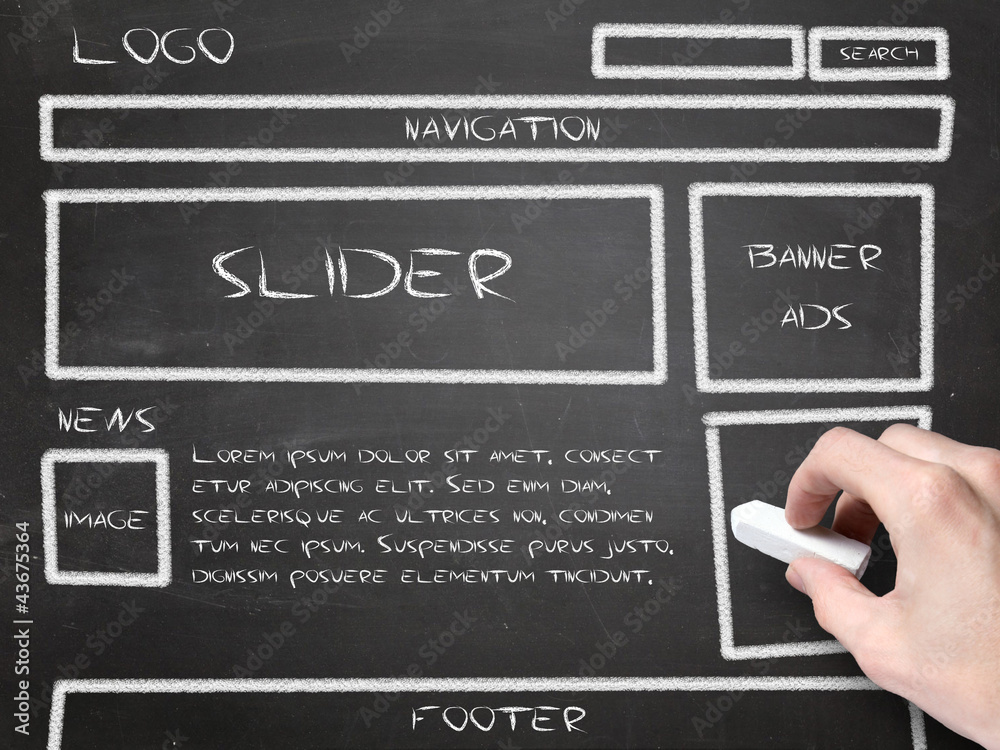 LOGO
SEARCH
NAVIGATION
SLIDER
BANNER
ADS
NEWS
IMAGE
LOREM IPSUM DOLOR SIT AMET, CONSECT
ETUR ADIPISCING ELIT. SED ENIM DIAM,
SCELERISQUE AC ULTRICES NON, CONDIMEN
TUM NEC IPSUM. SUSPENDISSE PURUS JUSTO,
DIGNISSIM POSUERE ELEMENTUM TINCIDUNT.
FOOTER
Adobe Stock | #43675364
Adobe Stock